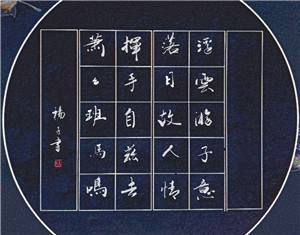 浮雲游子意
落日故人情
揮手自茲去
蕭々班馬鳴